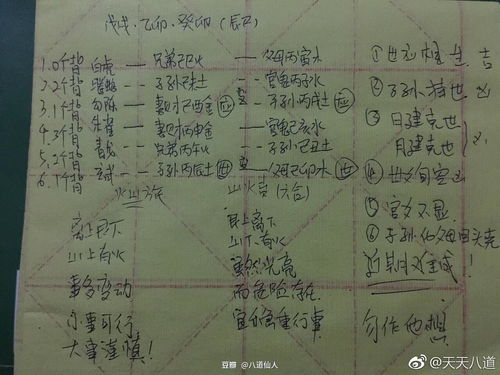 戊戌、乙卯、癸卯(辰巳)
1. 0个背 白虎 兄弟己巳火 父母丙寅木
2. 2个背 螣蛇 子孙己未土 官鬼丙子水
3. 1个背 勾陈 妻财己酉金 应 子孙丙戌土 应
4. 个背 朱雀 妻财丙申金 官鬼己亥水
5. 2个背 青龙 兄弟丙午火 子孙己丑土
6. 1个背 玄武 子孙丙辰土 世 父母己卯 世
火山旅 山火贲(六合)
离上艮下
山上有火
事多变动
小事可行
大事谨慎!
艮上离下
山下有火
虽然光亮
而危险存在
宜慎重行事
① 世应相生、吉
② 子孙持世 凶
③ 日建克世
月建克世 凶
④ 世爻旬空 凶
⑤ 官爻不显
⑥ 子孙化父母回头克
近期难成!
勿作他想
豆瓣 @八道仙人
@天天八道